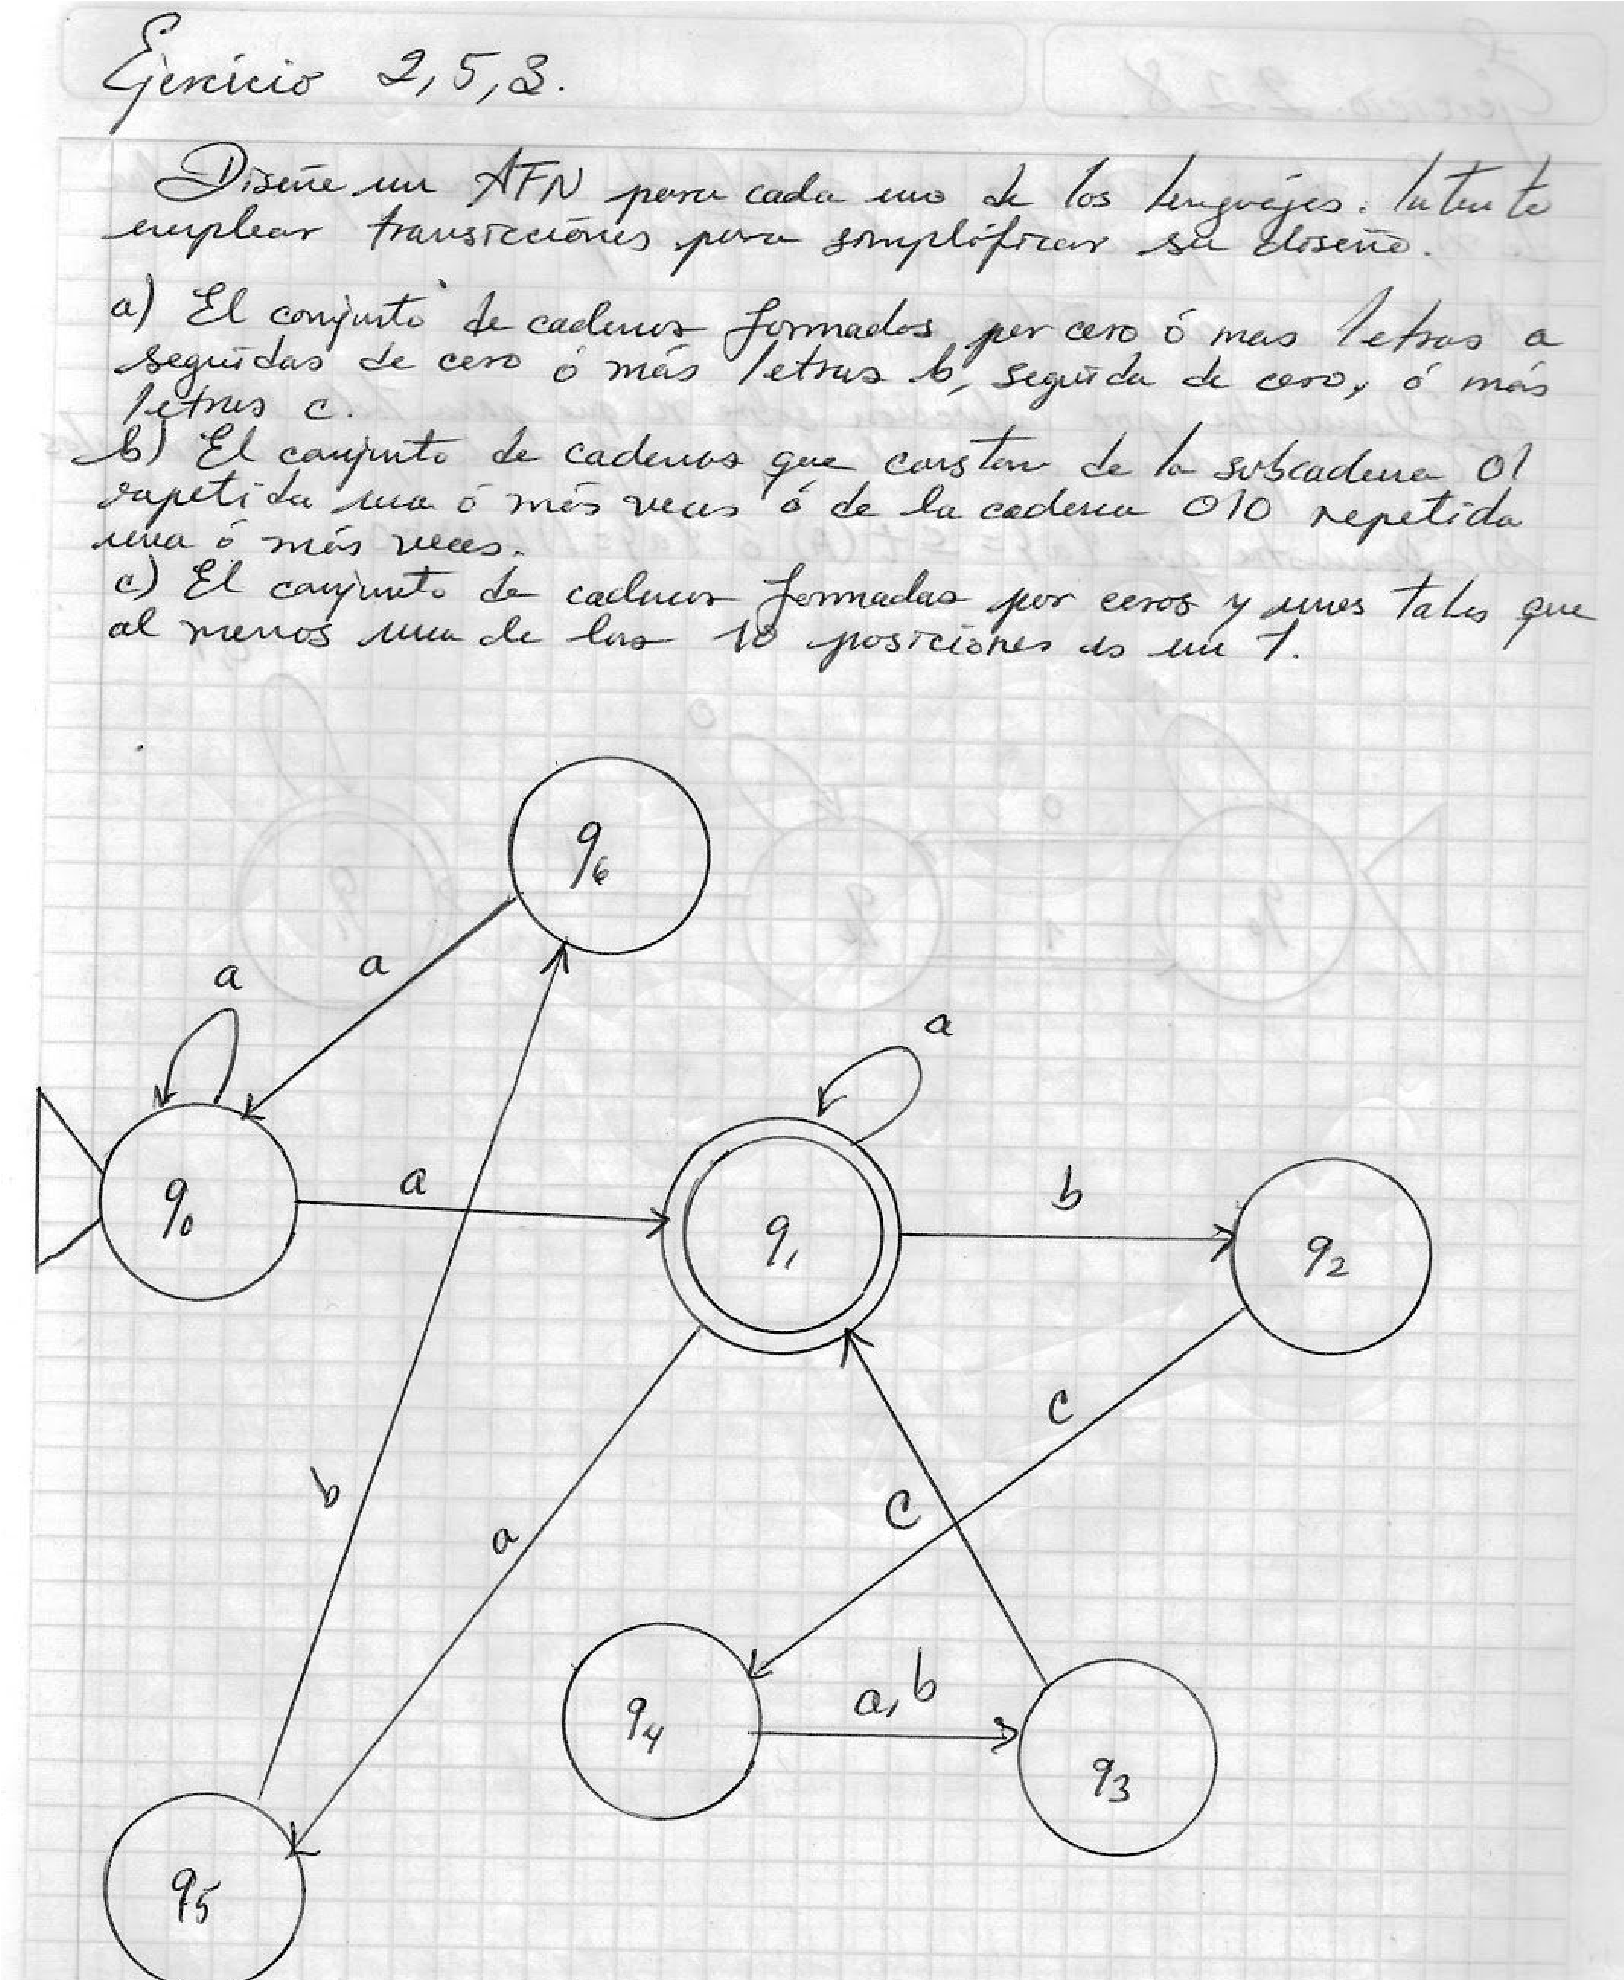 Ejercicio 2,5,3.
Diseñe un AFN para cada uno de los lenguajes. Intente
emplear transicciones para simplificar su diseño.
a) El conjunto de cadenas formados por cero ó mas letras a
seguidas de cero ó más letras b, seguida de cero, ó más
letras c.
b) El conjunto de cadenas que constan de la subcadena 01
rapetida una ó más veces ó de la cadena 010 repetida
una ó más veces.
c) El conjunto de cadenas formadas por ceros y unos tales que
al menos una de las 10 posiciones es un 1.
q6
a
a
a
q0
a
q1
b
q2
c
b
a
c
q4
a,b
q3
q5